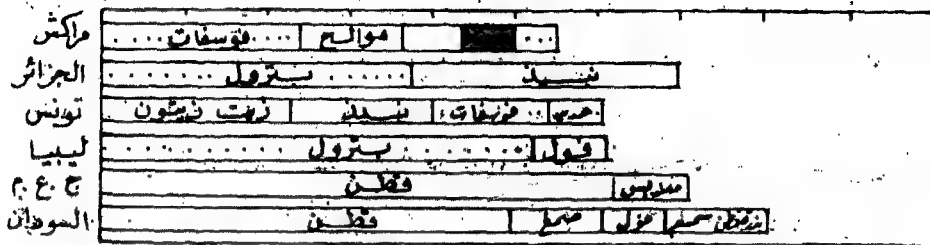 مراكش فوسفات موالح
الجزائر بترول نبيذ
تونس زيت زيتون نبيذ فوسفات
ليبيا بترول فول
ج.ع.م قطن
السودان قطن صمغ فول سمسم